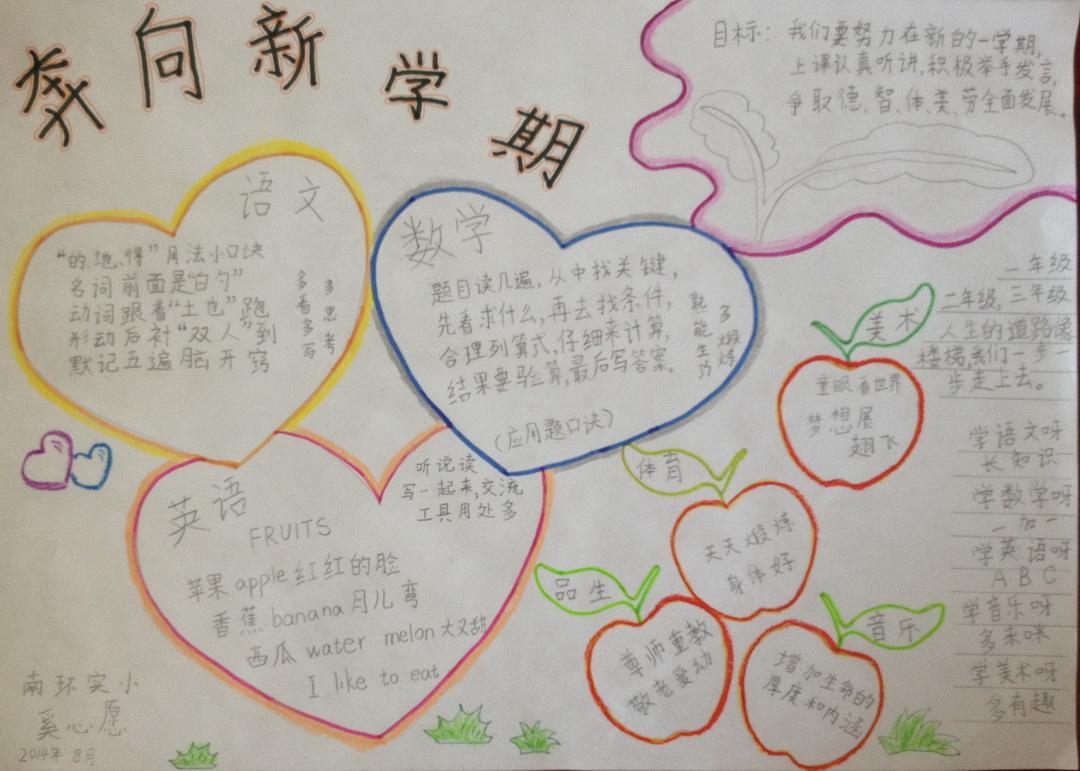 奔向新学期
目标：我们要努力在新的一学期，
上课认真听讲，积极举手发言，
争取德、智、体、美、劳全面发展。
语文
“的、地、得”用法小口诀
名词前面是“白勺”
动词跟着“土也”跑
形动后衬“双人”到
默记五遍脑开窍
多看多写
多思考
数学
题目读几遍，从中找关键，
先看求什么，再去找条件，
合理列算式，仔细来计算，
结果要验算，最后写答案。
（应用题口诀）
熟能生巧
多煅炼
英语
听说读
写一起来，交流
工具用处多
FRUITS
苹果 apple 红红的脸
香蕉 banana 月儿弯
西瓜 water melon 大又甜
I like to eat
美术
童眼看世界
梦想展
翅飞
体育
天天煅炼
身体好
品生
尊师重教
敬老爱幼
音乐
增加生命的
厚度和内涵
一年级
二年级，三年级
人生的道路像
楼梯，我们一步一
步走上去。
学语文呀
长知识
学数学呀
一加一
学英语呀
A B C
学音乐呀
多来咪
学美术呀
多有趣
南环实小
奚心愿
2014年8月